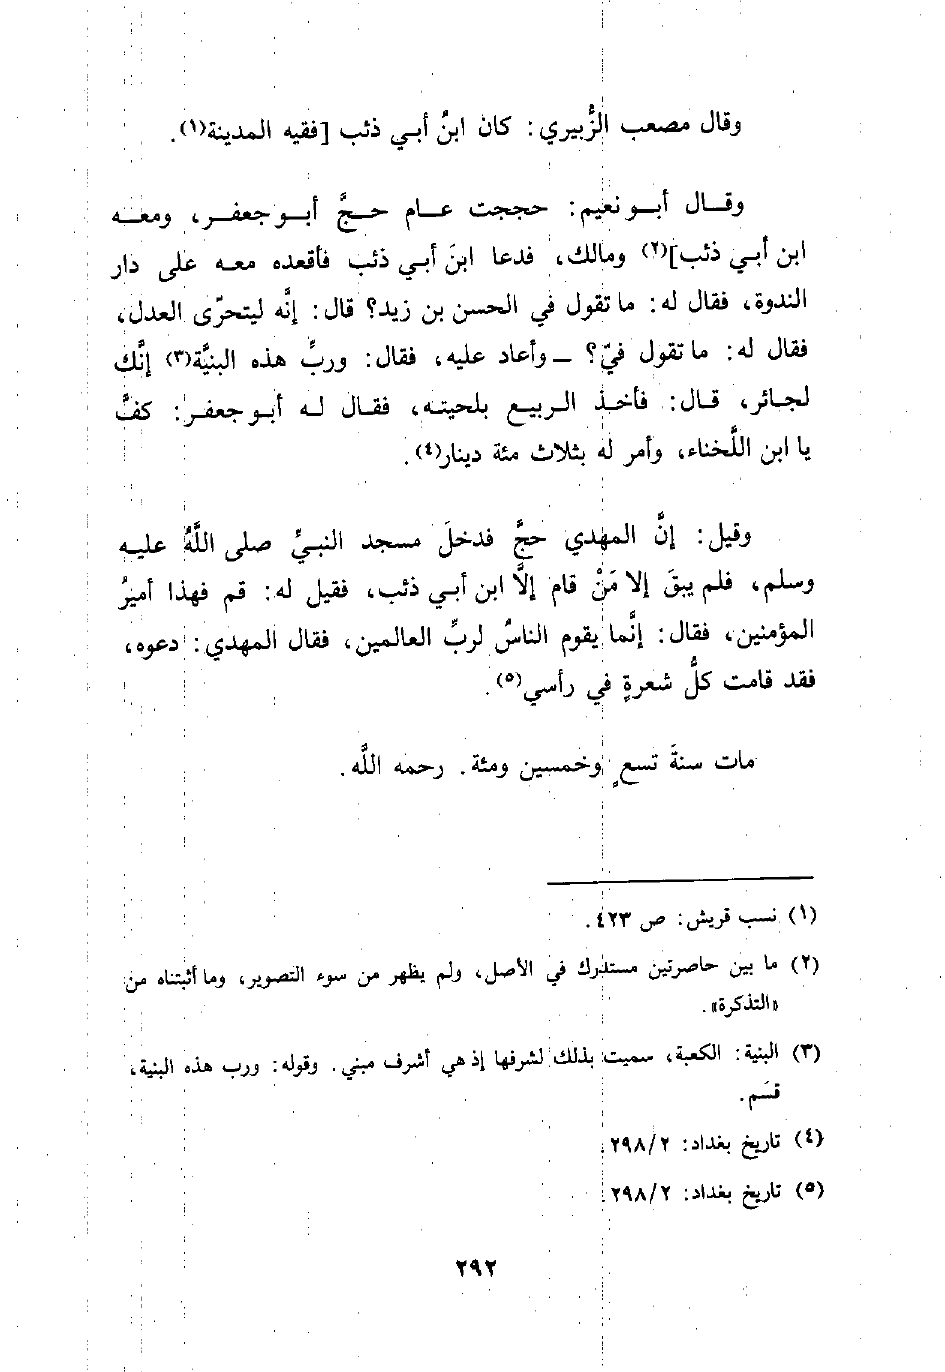 وقال مصعب الزُّبيري: كان ابنُ أبي ذئب [فقيه المدينة(١).
وقال أبو نعيم: حججت عام حجَّ أبو جعفر، ومعه
ابن أبي ذئب](٢) ومالك، فدعا ابنَ أبي ذئب فأقعده معه على دار
الندوة، فقال له: ما تقول في الحسن بن زيد؟ قال: إنَّه ليتحرّى العدل،
فقال له: ما تقول فيّ؟ ــ وأعاد عليه، فقال: وربِّ هذه البنيَّة(٣) إنَّك
لجائر، قال: فأخذ الربيع بلحيته، فقال له أبو جعفر: كفَّ
يا ابن اللَّخناء، وأمر له بثلاث مئة دينار(٤).
وقيل: إنَّ المهدي حجَّ فدخلَ مسجد النبيِّ صلى اللَّهُ عليه
وسلم، فلم يبقَ إلا مَنْ قام إلَّا ابن أبي ذئب، فقيل له: قم فهذا أميرُ
المؤمنين، فقال: إنَّما يقوم الناسُ لربِّ العالمين، فقال المهدي: دعوه،
فقد قامت كلُّ شعرةٍ في رأسي(٥).
مات سنةَ تسعٍ وخمسين ومئة. رحمه اللَّه.
(١) نسب قريش: ص ٤٢٣.
(٢) ما بين حاصرتين مستدرك في الأصل، ولم يظهر من سوء التصوير، وما أثبتناه من
«التذكرة».
(٣) البنية: الكعبة، سميت بذلك لشرفها إذ هي أشرف مبني. وقوله: ورب هذه البنية،
قسَم.
(٤) تاريخ بغداد: ٢٩٨/٢.
(٥) تاريخ بغداد: ٢٩٨/٢.
٢٩٢